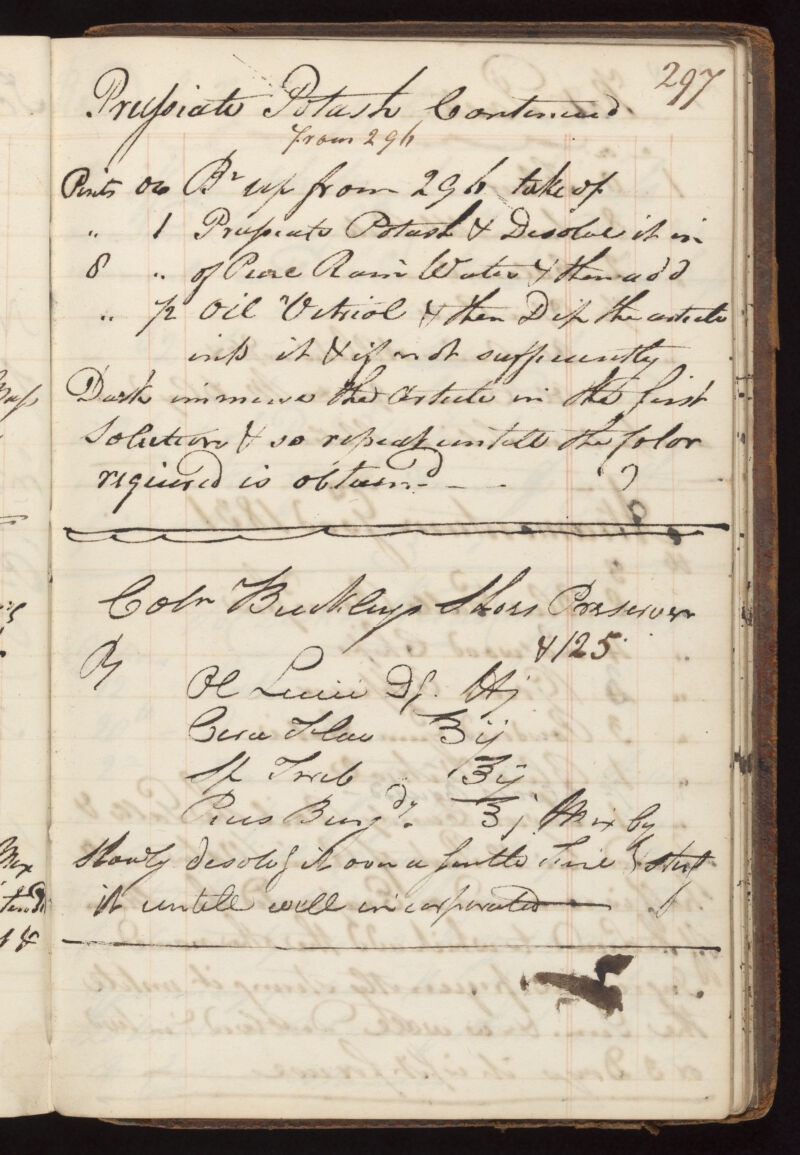 297
Prussiate Potash Continued
from 296
Pints oz Bt up from 296 take of
" 1 Prussiate Potash & Disolve it in
8 " of Pure Rain Water & then add
" ½ Oil Vitriol & then Dip the article
into it & if not suffuently
Dark immerse the Article in the first
Solution & so repeat untill the Color
required is obtained
Coln Buckleys Shoes Preserver
& 125
℞
Ol Linii
Cera Flav ℥ij
Sp Treb ℥ij
Picis Burgdy ℥j Mix by
slowly desolvg it over a gentle Fire & stirg
it untill well incorporated